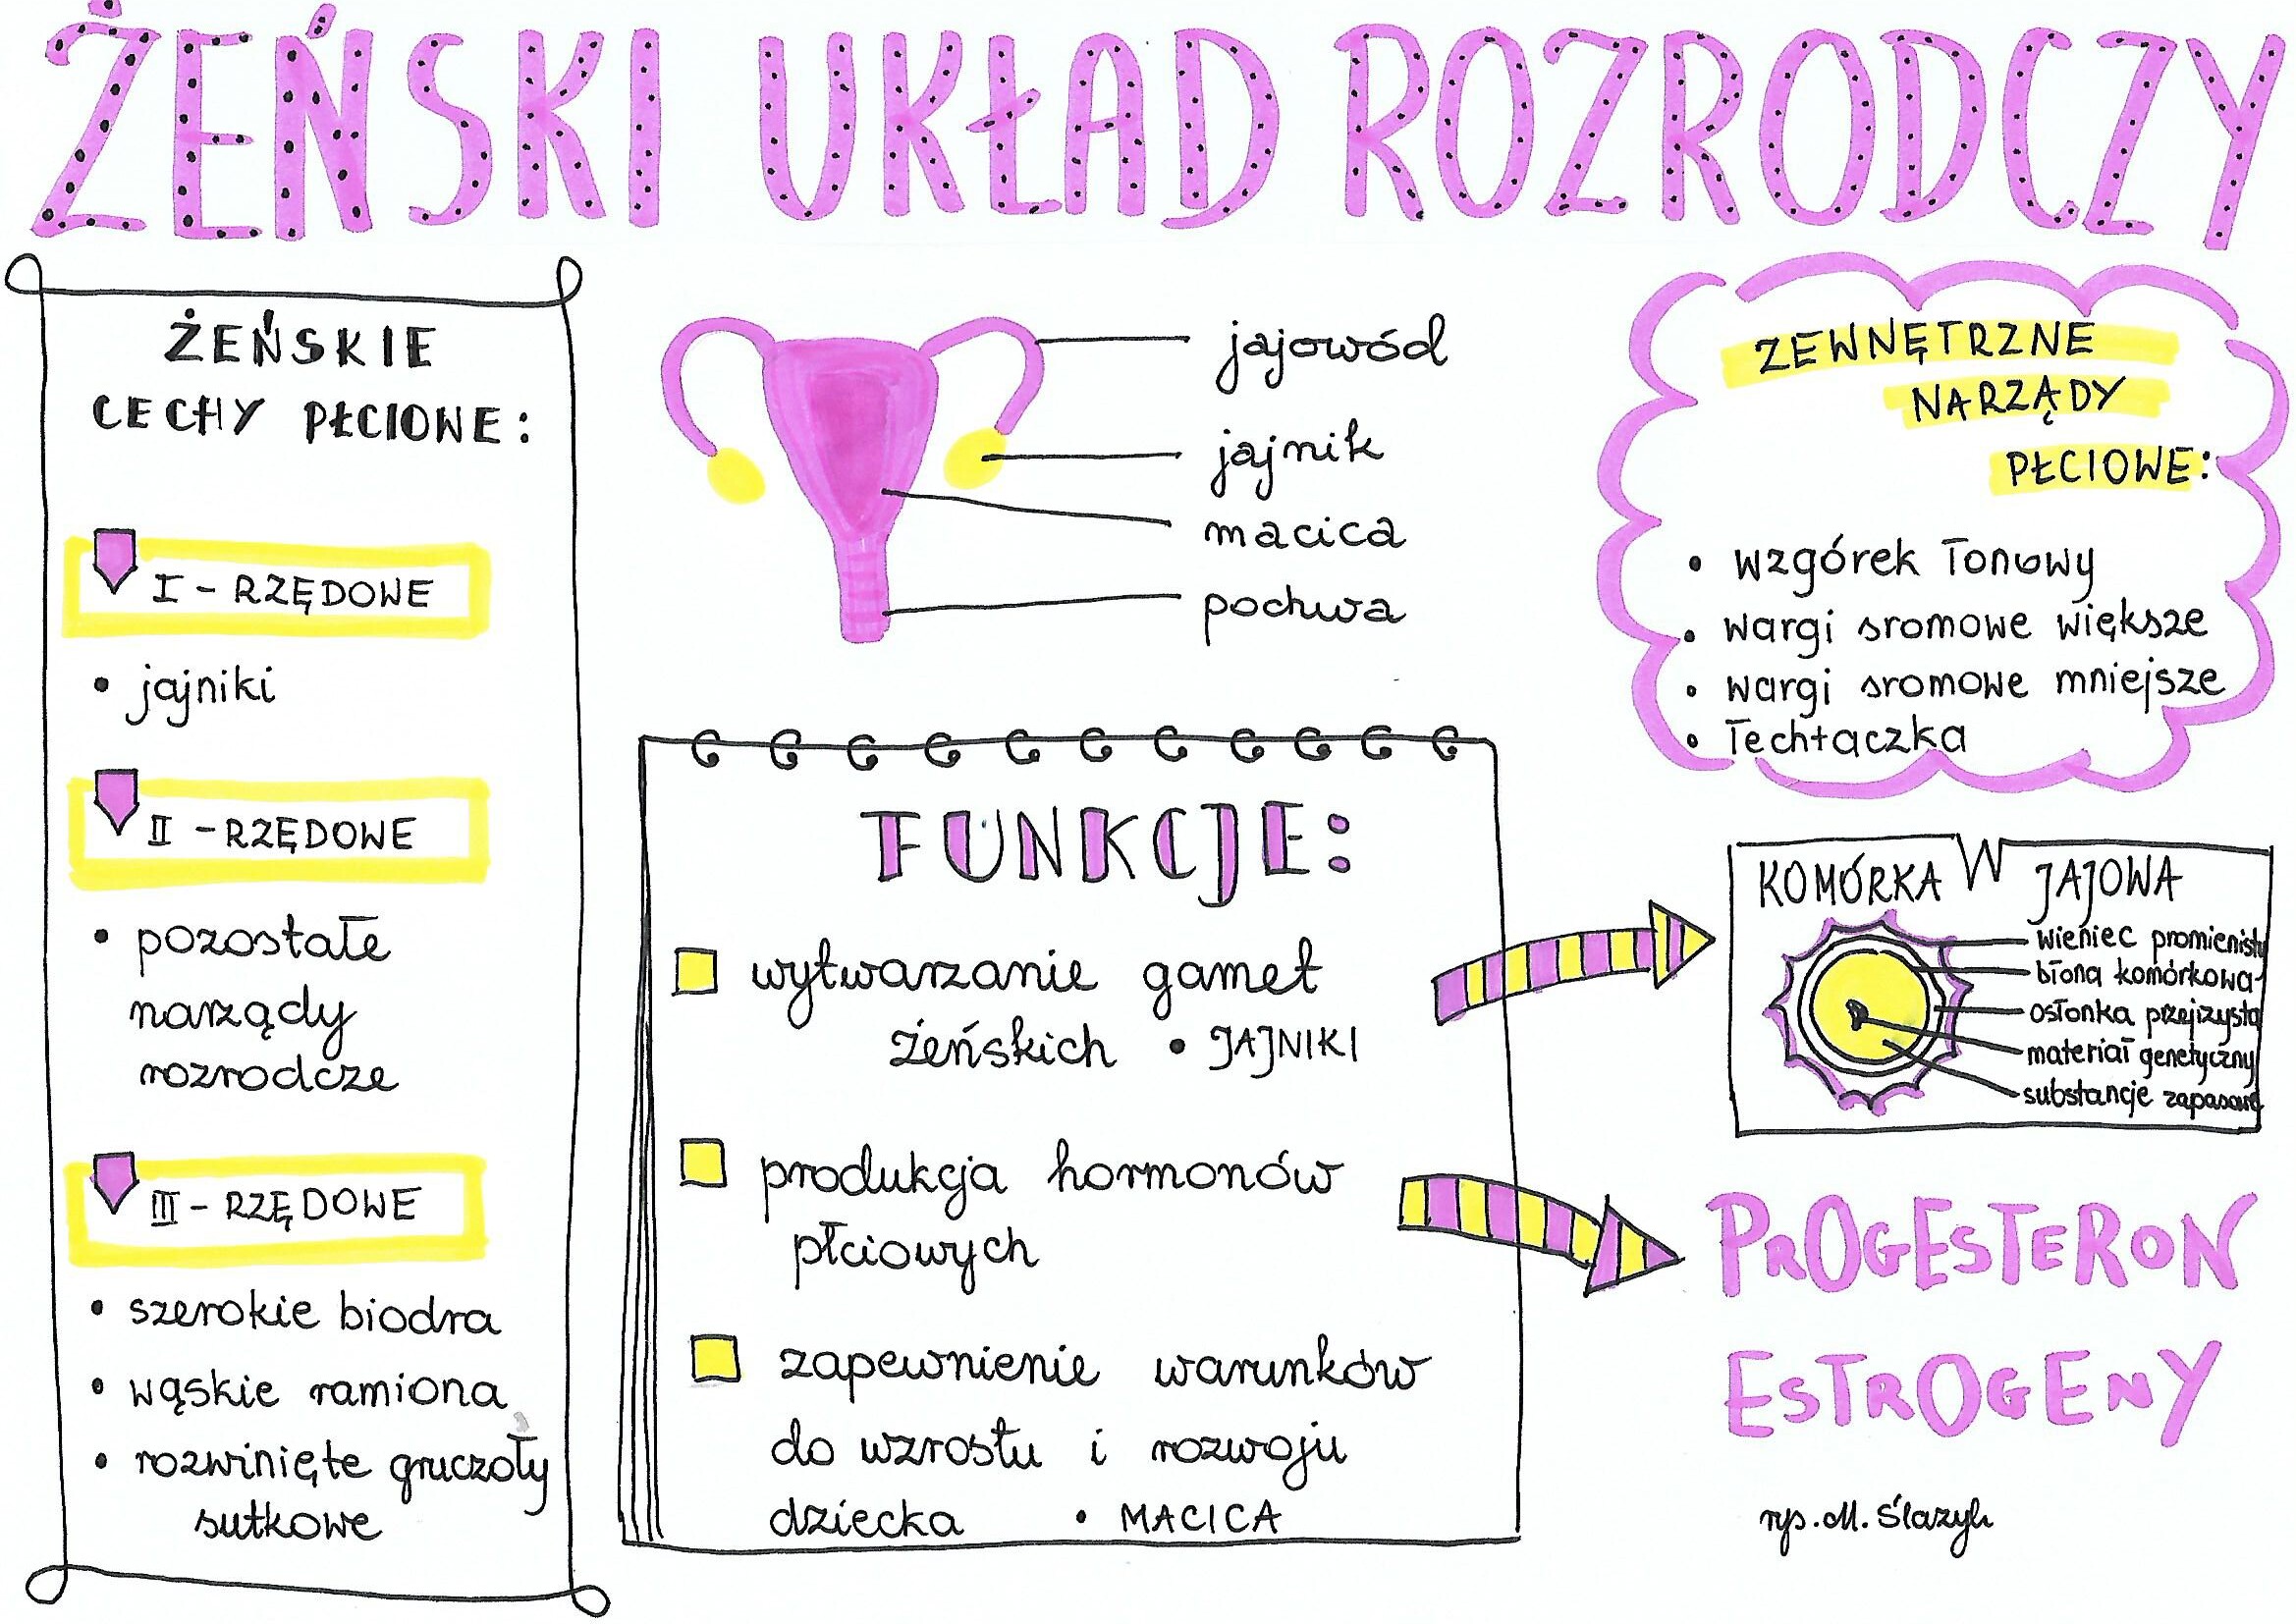 ŻEŃSKI UKŁAD ROZRODCZY
ŻEŃSKIE
CECHY PŁCIOWE:
I - RZĘDOWE
• jajniki
II - RZĘDOWE
• pozostałe
narządy
rozrodcze
III - RZĘDOWE
• szerokie biodra
• wąskie ramiona
• rozwinięte gruczoły
sutkowe
jajowód
jajnik
macica
pochwa
FUNKCJE:
wytwarzanie gamet
żeńskich • JAJNIKI
produkcja hormonów
płciowych
zapewnienie warunków
do wzrostu i rozwoju
dziecka • MACICA
ZEWNĘTRZNE
NARZĄDY
PŁCIOWE:
• wzgórek łonowy
• wargi sromowe większe
• wargi sromowe mniejsze
• łechtaczka
KOMÓRKA JAJOWA
wieniec promienisty
błona komórkowa
osłonka przejrzysta
materiał genetyczny
substancje zapasowe
PROGESTERON
ESTROGENY
rys. M. Ślazyk